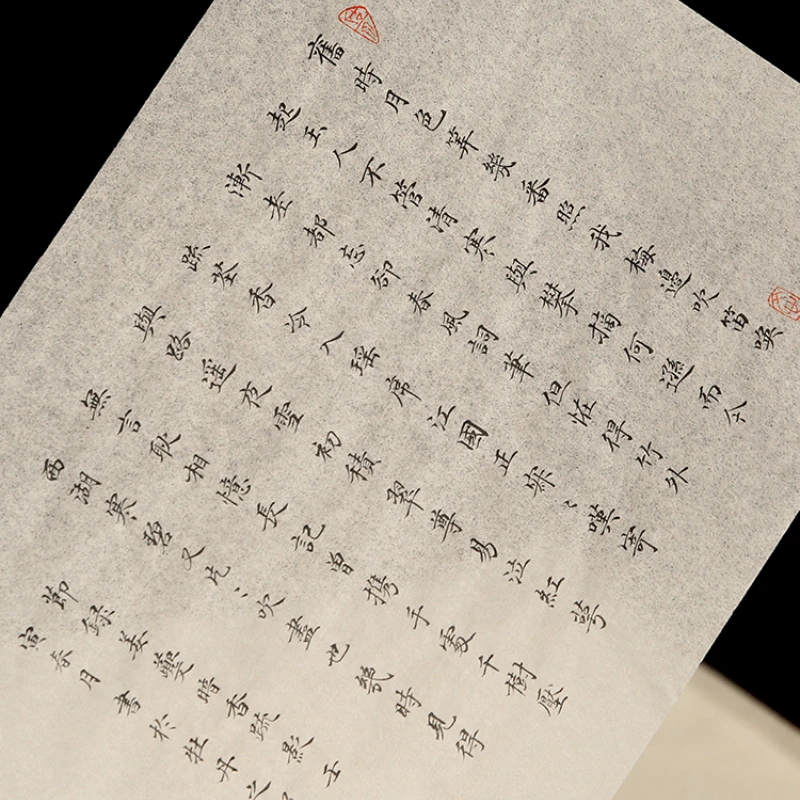 舊時月色算幾番照我梅邊吹笛喚
起玉人不管清寒與攀摘何遜而今
漸老都忘卻春風詞筆但怪得竹外
疏花香冷入瑤席江國正寂〻嘆寄
與路遙夜雪初積翠尊易泣紅萼
無言耿相憶長記曾携手處千樹壓
西湖寒碧又片〻吹盡也幾時見得
節録姜夔暗香疏影壬
寅春月書於牡丹之